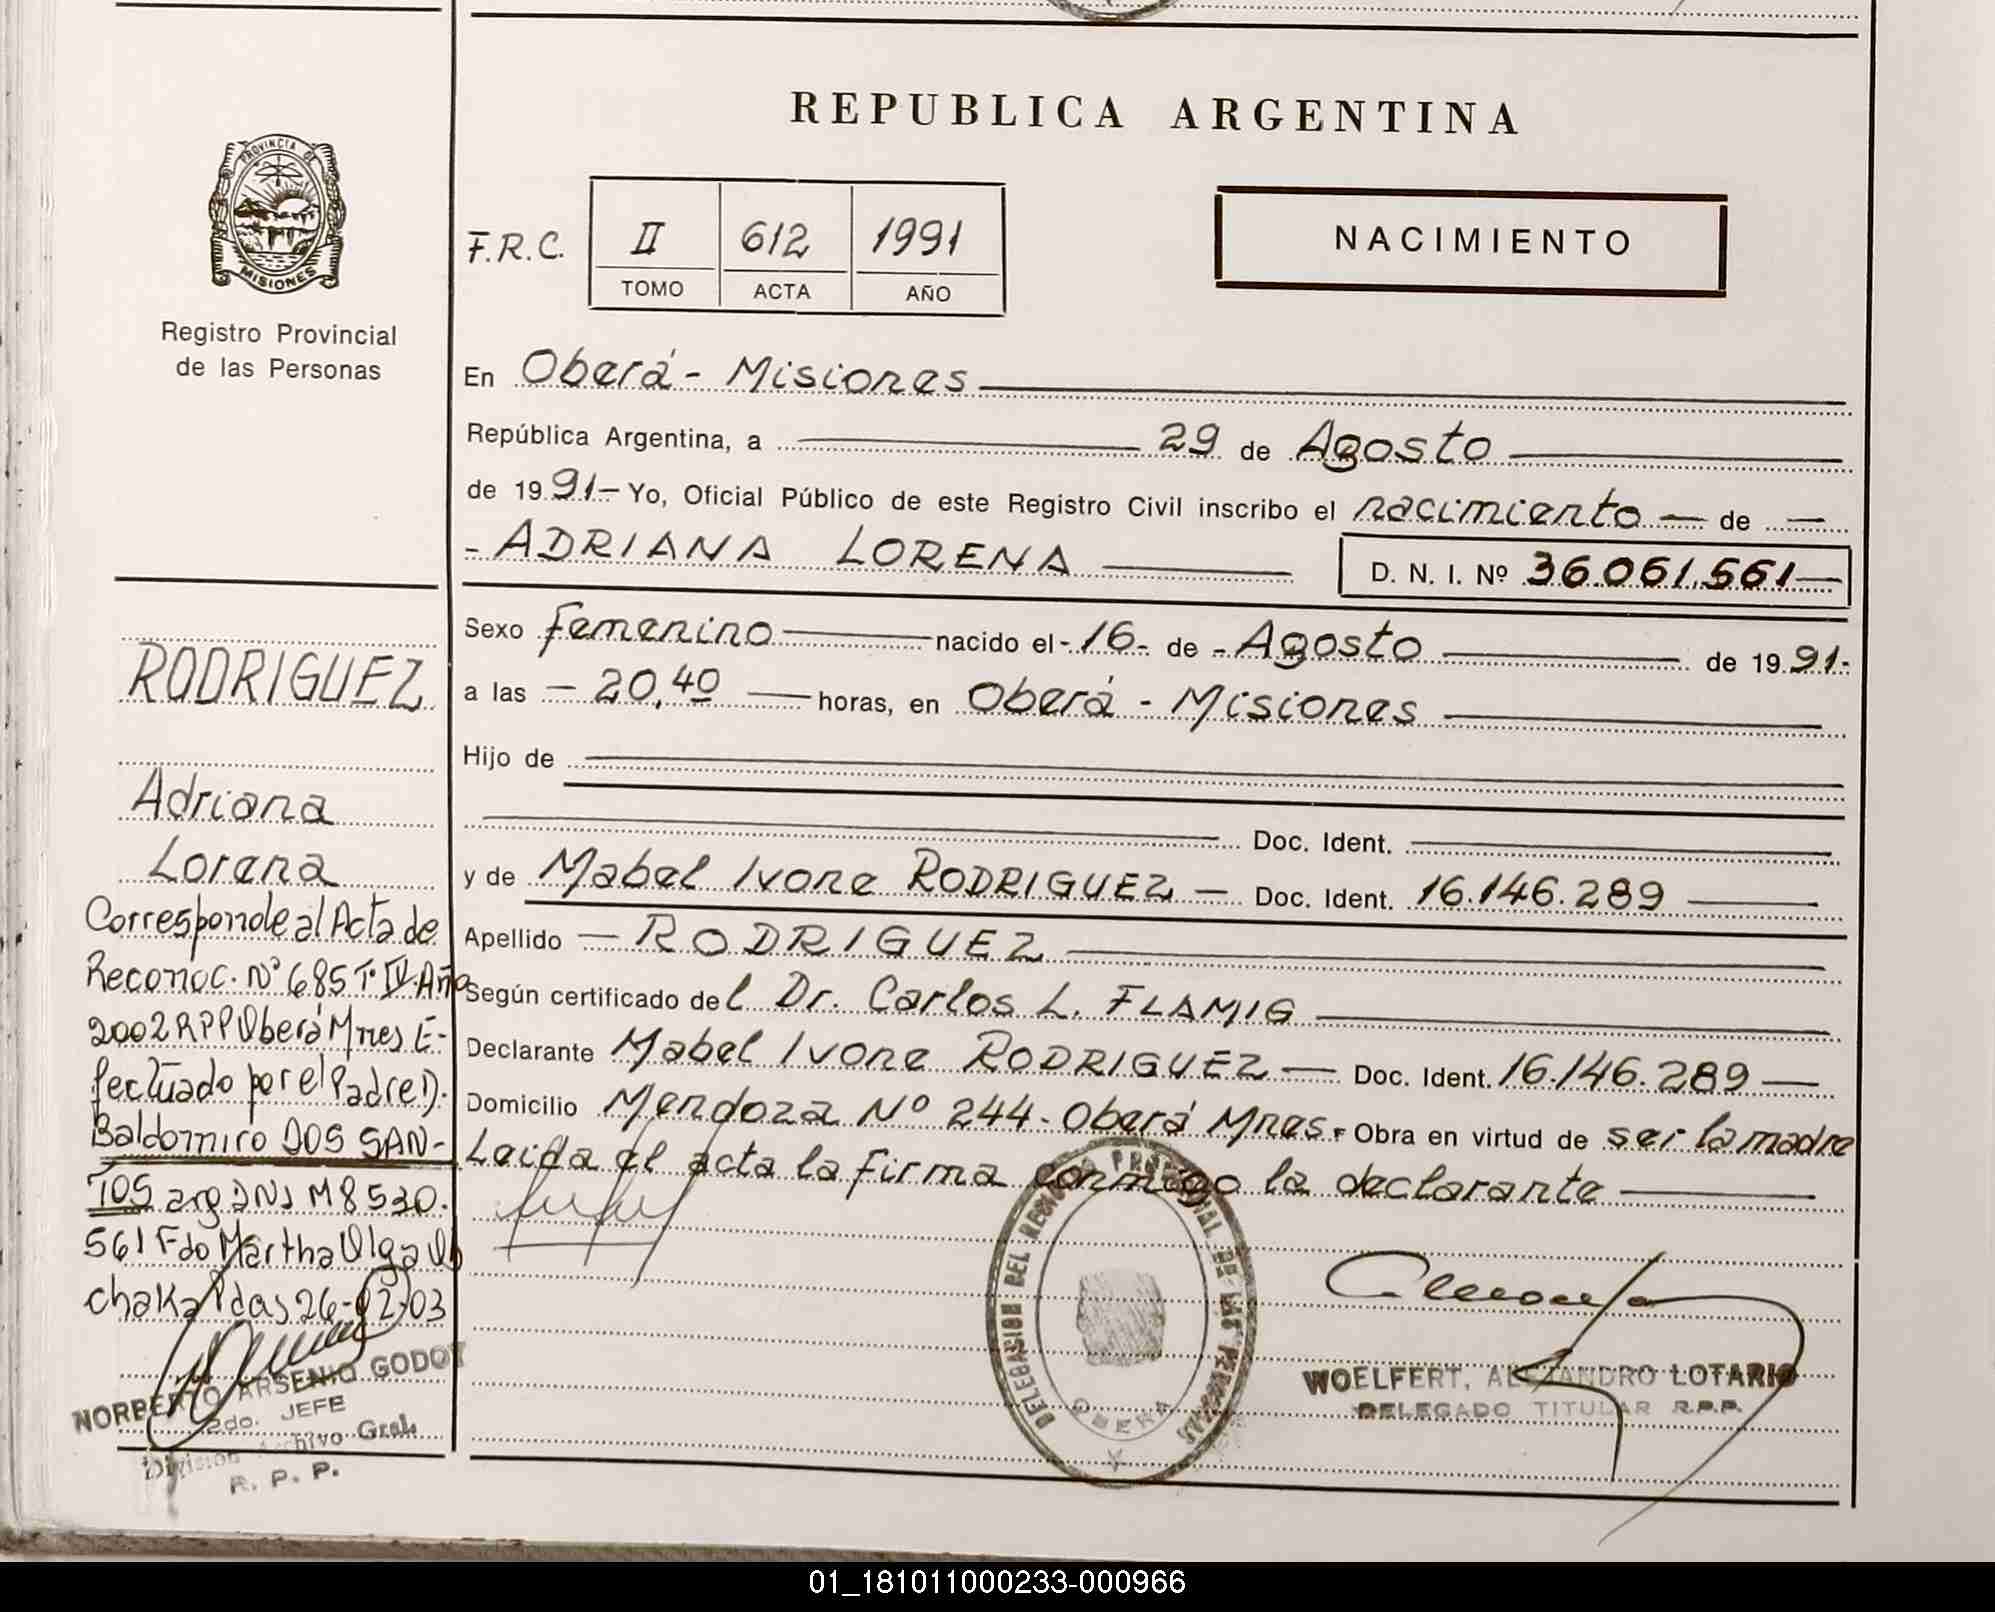 REPUBLICA ARGENTINA
PROVINCIA DE
MISIONES
Registro Provincial
de las Personas
F.R.C. II 612 1991
TOMO ACTA AÑO
NACIMIENTO
En Oberá - Misiones
República Argentina, a 29 de Agosto
de 1991- Yo, Oficial Público de este Registro Civil inscribo el nacimiento - de -
- ADRIANA LORENA
D. N. I. Nº 36.061.561-
Sexo femenino nacido el - 16 - de - Agosto de 1991-
a las - 20,40 horas, en Oberá - Misiones
Hijo de
Doc. Ident.
y de Mabel Ivone RODRIGUEZ - Doc. Ident. 16.146.289
Apellido - RODRIGUEZ
Según certificado del Dr. Carlos L. FLAMIG
Declarante Mabel Ivone RODRIGUEZ - Doc. Ident. 16.146.289
Domicilio Mendoza Nº 244 - Oberá Mnes. - Obra en virtud de ser la madre
Leida el acta la firma conmigo la declarante
RODRIGUEZ
Adriana
Lorena
Corresponde al Acta de
Reconoc. Nº 685 Tº IV. Año
2002 RPP Oberá Mnes E-
fectuado por el Padre D.
Baldomiro DOS SAN-
TOS arg DNI M8530.
561 Fdo Martha Olga
das 26-02-03
NORBERTO ARSENIO GODOY
2do. JEFE
Division Archivo Gral.
R. P. P.
DELEGASION DEL REGISTRO PROVINCIAL DE LAS PERSONAS
OBERA
WOELFERT, ALEJANDRO LOTARIO
DELEGADO TITULAR R.P.P.
01_181011000233-000966